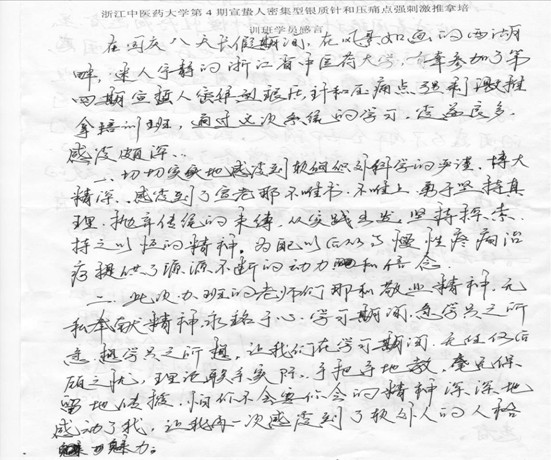 浙江中医药大学第4期宣蛰人密集型银质针和压痛点强刺激推拿培
训班学员感言
在国庆八天长假期间,在风景如画的西湖
畔,迷人宁静的浙江省中医药大学,有幸参加了第
四期宣蛰人密集型银质针和压痛点强刺激推
拿培训班,通过这次系统的学习,受益良多,
感受颇深..
一、切切实实地感受到软组织外科学的严谨、博大
精深、感受到了宣老那不唯书、不唯上,勇于坚持真
理,抛弃传统的束缚,从实践出发,坚持探索、
持之以恒的精神。为我以后从事慢性疼痛治
疗提供了源源不断的动力和信念.
二、此次办班的老师们那种敬业精神,无
私奉献精神永铭于心.学习期间,急学员之所
急,想学员之所想,让我们在学习期间,无任何后
顾之忧,理论联系实际,手把手地教,毫无保
留地传授,怕你不会要你会的精神深深地
感动了我,让我再一次感受到了软外人的人格
魅力.